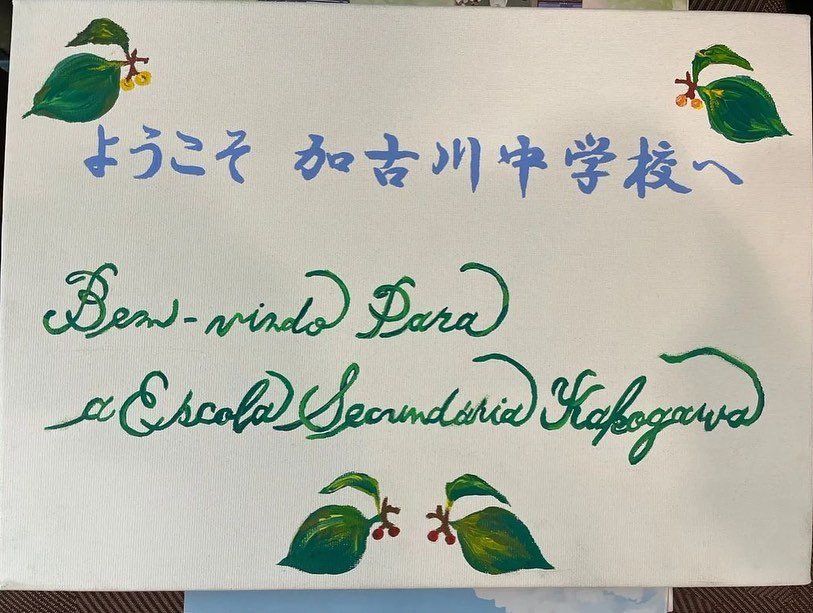 ようこそ 加古川中学校へ
Bem-vindo Para
a Escola Secundária Kakogawa